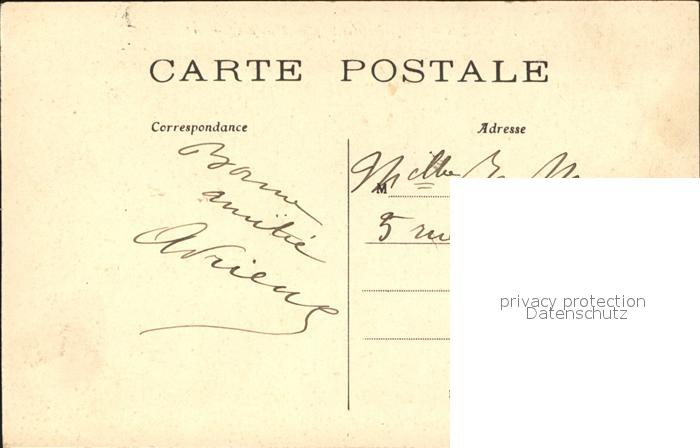 CARTE POSTALE
Correspondance
Bonne
amitié
Adrienne
Adresse
M
5 rue
privacy protection
Datenschutz